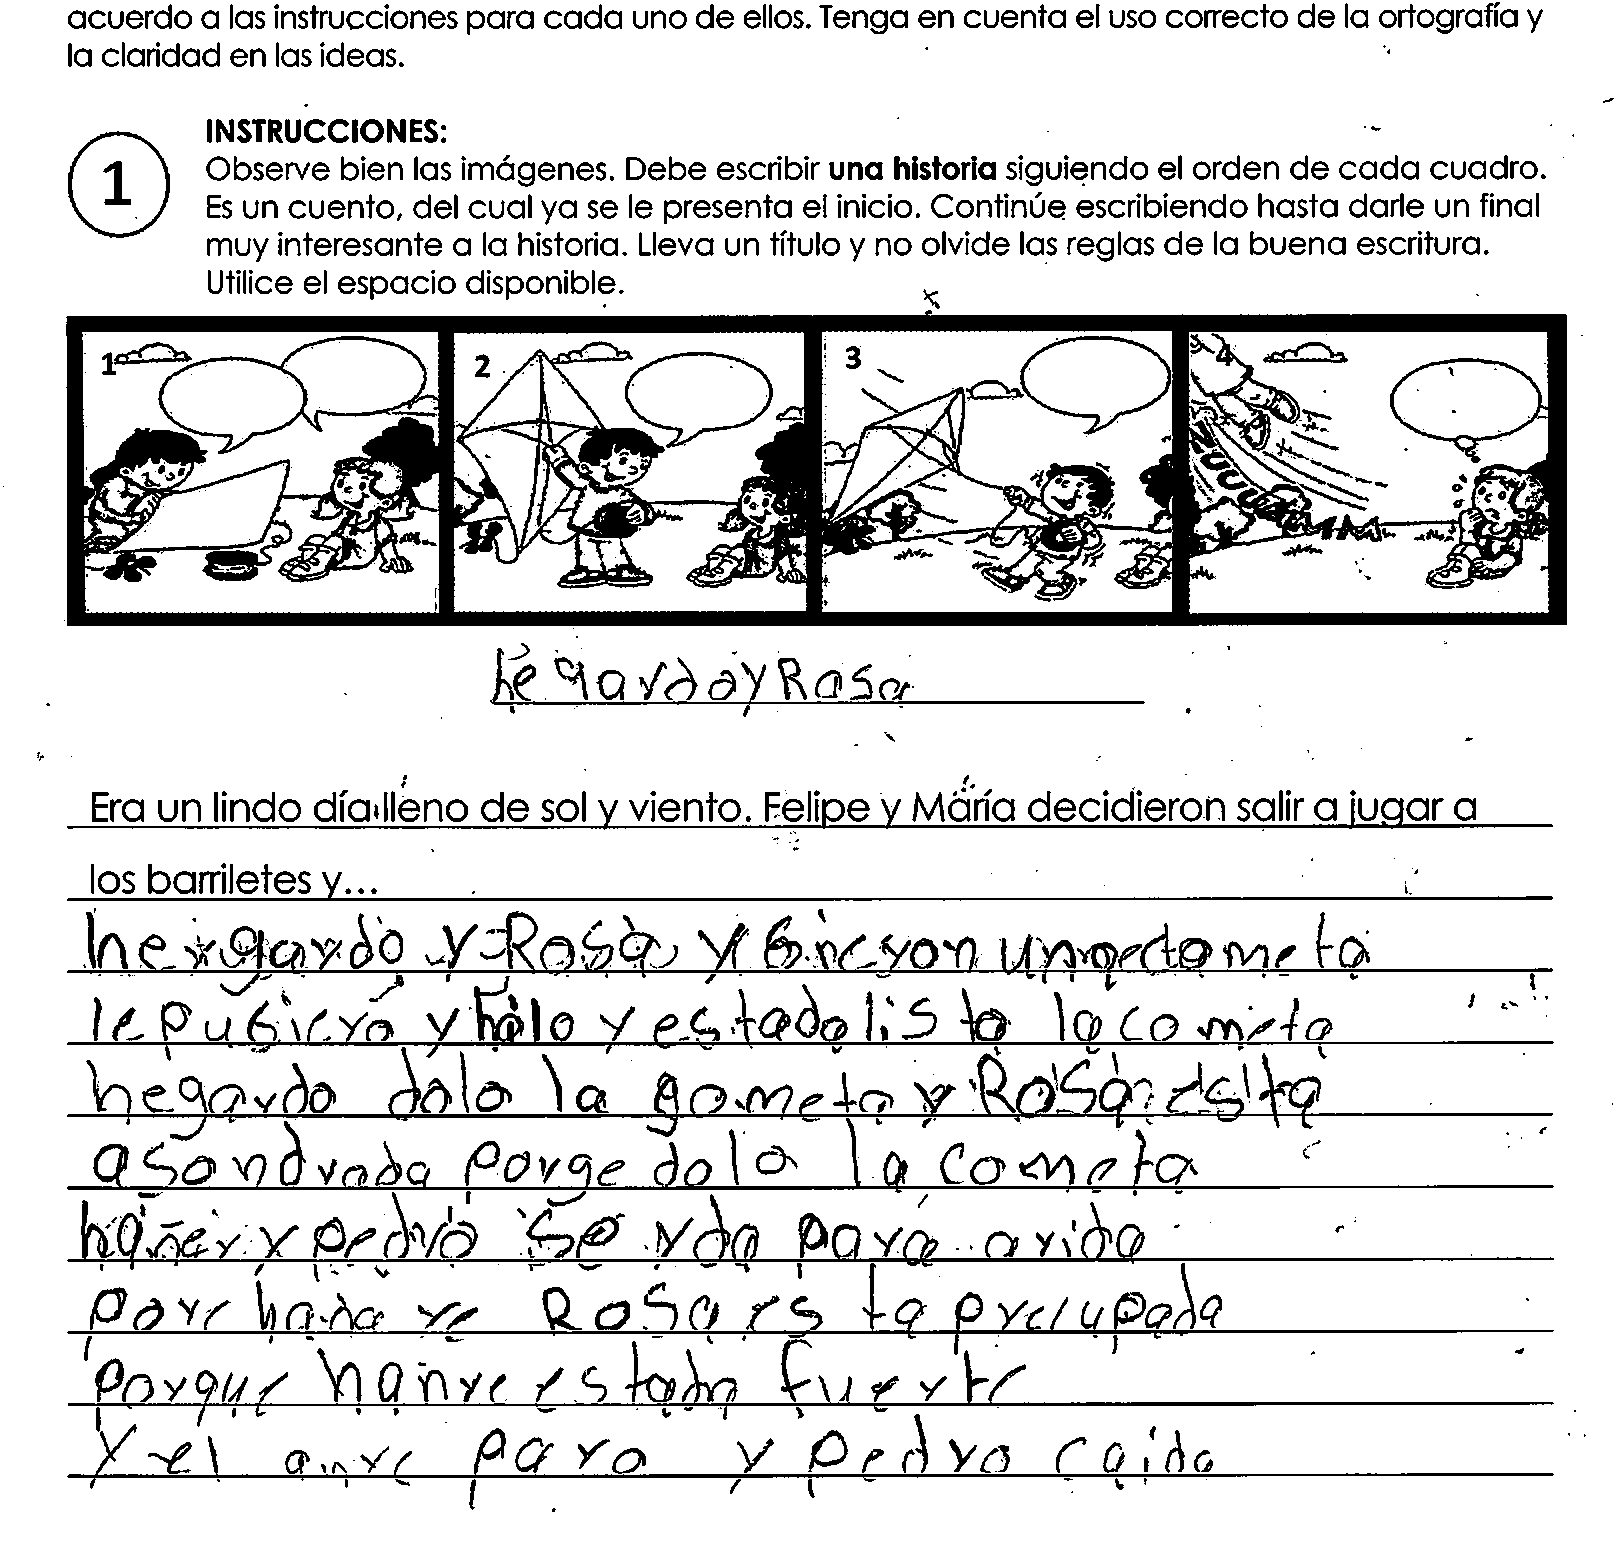 acuerdo a las instrucciones para cada uno de ellos. Tenga en cuenta el uso correcto de la ortografía y
la claridad en las ideas.
1
INSTRUCCIONES:
Observe bien las imágenes. Debe escribir una historia siguiendo el orden de cada cuadro.
Es un cuento, del cual ya se le presenta el inicio. Continúe escribiendo hasta darle un final
muy interesante a la historia. Lleva un título y no olvide las reglas de la buena escritura.
Utilice el espacio disponible.
1 2 3 4
hegardo y Rosa
Era un lindo día lleno de sol y viento. Felipe y María decidieron salir a jugar a
los barriletes y...
y Rosa y
le pusiero y hilo y estada listo la cometa
hegardo dolo la gometa y Rosa esta
asondrada porge dolo la cometa
y pedro se para arida
Rosa esta precupada
porque estada fuerte
y el anre paro y pedro caido